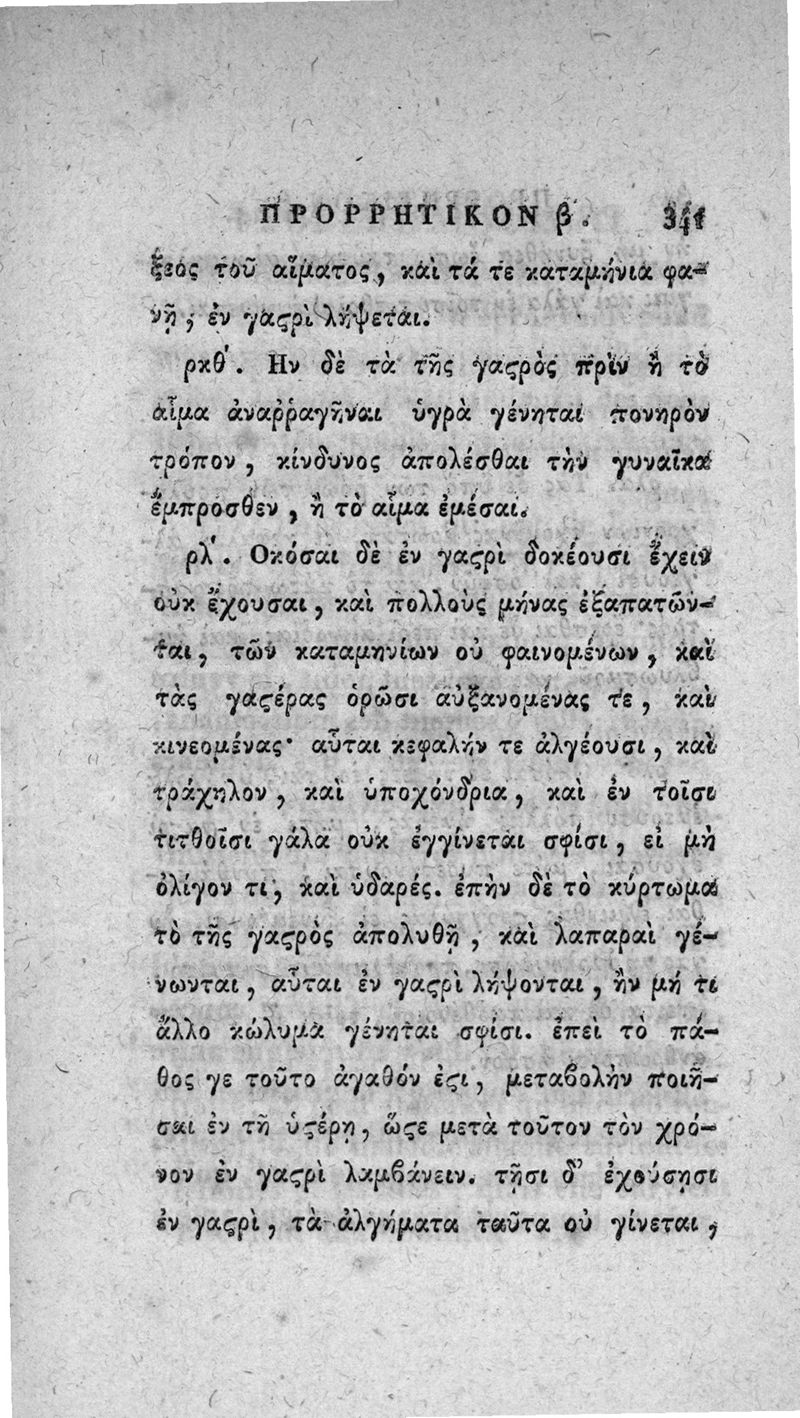 ΠΡΟΡΡΗΤΙΚΟΝ β΄. 341
ξεός τοῦ αἵματος, καὶ τά τε καταμήνια φα-
νῇ, ἐν γαϛρὶ λήψεται.
ρκθ΄. Ην δὲ τὰ τῆς γαϛρὸς πρὶν ἢ τὸ
αἷμα ἀναῤῥαγῆναι ὑγρὰ γένηται πονηρὸν
τρόπον, κίνδυνος ἀπολέσθαι τὴν γυναῖκα
ἔμπροσθεν, ἢ τὸ αἷμα ἐμέσαι.
ρλ΄. Οκόσαι δὲ ἐν γαϛρὶ δοκέουσι ἔχειν
οὐκ ἔχουσαι, καὶ πολλοὺς μῆνας ἐξαπατῶν-
ται, τῶν καταμηνίων οὐ φαινομένων, καὶ
τὰς γαϛέρας ὁρῶσι αὐξανομένας τε, καὶ
κινεομένας· αὗται κεφαλήν τε ἀλγέουσι, καὶ
τράχηλον, καὶ ὑποχόνδρια, καὶ ἐν τοῖσι
τιτθοῖσι γάλα οὐκ ἐγγίνεται σφίσι, εἰ μὴ
ὀλίγον τι, καὶ ὑδαρές. ἐπὴν δὲ τὸ κύρτωμα
τὸ τῆς γαϛρὸς ἀπολυθῇ, καὶ λαπαραὶ γέ-
νωνται, αὗται ἐν γαϛρὶ λήψονται, ἢν μή τι
ἄλλο κώλυμα γένηται σφίσι. ἐπεὶ τὸ πά-
θος γε τοῦτο ἀγαθόν ἐϛι, μεταβολὴν ποιῆ-
σαι ἐν τῇ ὑϛέρῃ, ὥϛε μετὰ τοῦτον τὸν χρό-
νον ἐν γαϛρὶ λαμβάνειν. τῇσι δ᾽ ἐχούσῃσι
ἐν γαϛρὶ, τὰ ἀλγήματα ταῦτα οὐ γίνεται,